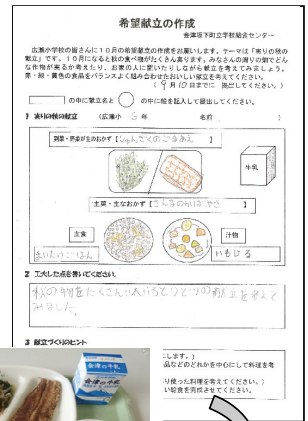 希望献立の作成
会津坂下町立学校給食センター
広瀬小学校の皆さんに１０月の希望献立の作成をお願いします。テーマは「実りの秋の
献立」です。１０月になると秋の食べ物がたくさん実ります。みなさんの周りの畑でどん
な作物が来るか考えたり、お家の人に聞いたりしながら献立を考えてみましょう。
赤・緑・黄色の食品をバランスよく組み合わせたおいしい献立を考えてください。
（９月１０日までに 提出してください。）
の中に献立名と の中に絵を記入して提出してください。
1 実りの秋の献立 （広瀬小 6 年 名前 ）
副菜・野菜が主のおかず【しゅんぎくのごまあえ 】
牛乳
主菜・主なおかず【さんまのかばやき 】
主食
汁物
きのこごはん
いもじる
2 工夫した点を書いてください。
秋の物をたくさん いろとりどりの献立を考えて
みました。
3 献立づくりのヒント
にします。）
品などのどれかを中心にして料理を考
り使った料理を考えてください。）
い給食を完成させてください。
会津の牛乳